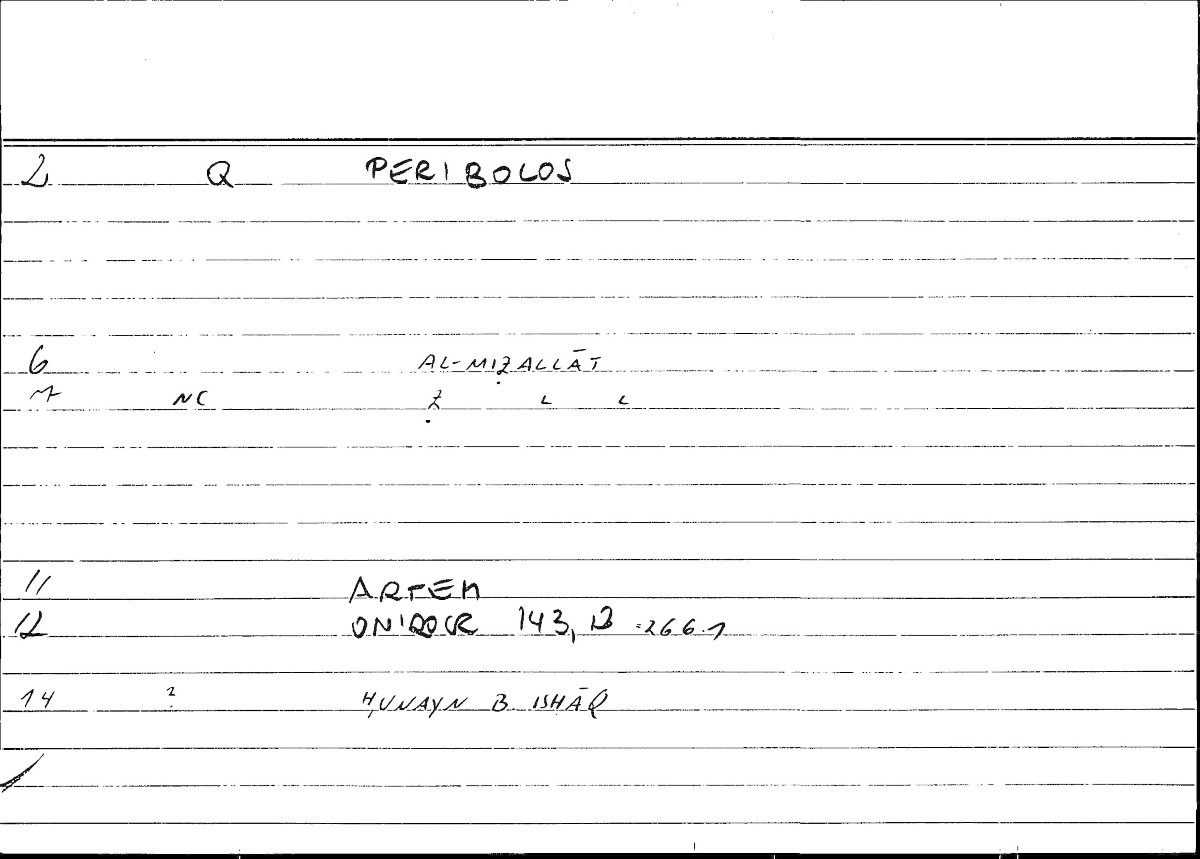 2 Q PERIBOLOS
6 AL-MIẒALLĀT
7 NC Ẓ L L
11 ARTEM
12 ONIROCR 143, 13 =266.1
14 ? ḤUNAYN B ISḤĀQ